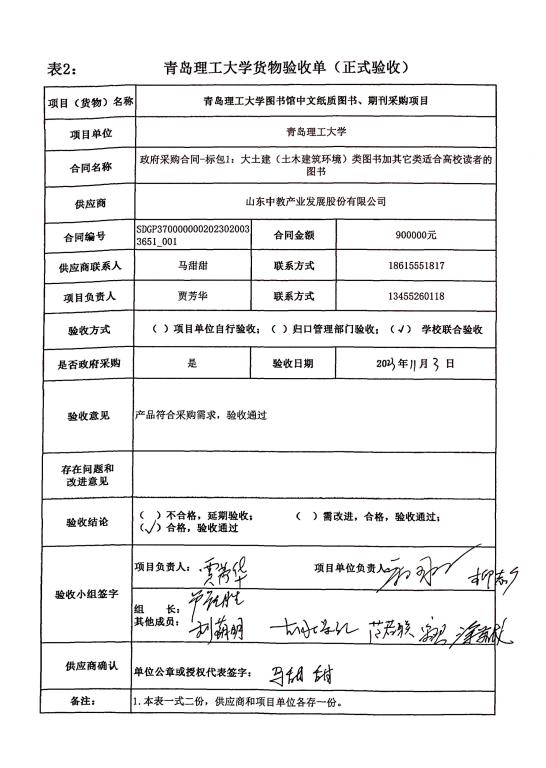 表2：
青岛理工大学货物验收单（正式验收）
项目（货物）名称 青岛理工大学图书馆中文纸质图书、期刊采购项目
项目单位 青岛理工大学
合同名称 政府采购合同-标包1：大土建（土木建筑环境）类图书加其它类适合高校读者的
图书
供应商 山东中教产业发展股份有限公司
合同编号 SDGP370000000202302003
3651_001 合同金额 900000元
供应商联系人 马甜甜 联系方式 18615551817
项目负责人 贾芳华 联系方式 13455260118
验收方式 （ ）项目单位自行验收；（ ）归口管理部门验收；（√） 学校联合验收
是否政府采购 是 验收日期 2023年11月3日
验收意见 产品符合采购需求，验收通过
存在问题和
改进意见
验收结论 （ ）不合格，延期验收； （ ）需改进，合格，验收通过；
（√）合格，验收通过
验收小组签字 项目负责人：贾芳华 项目单位负责人：
组 长：
其他成员：
供应商确认 单位公章或授权代表签字：马甜甜
备注： 1.本表一式二份，供应商和项目单位各存一份。